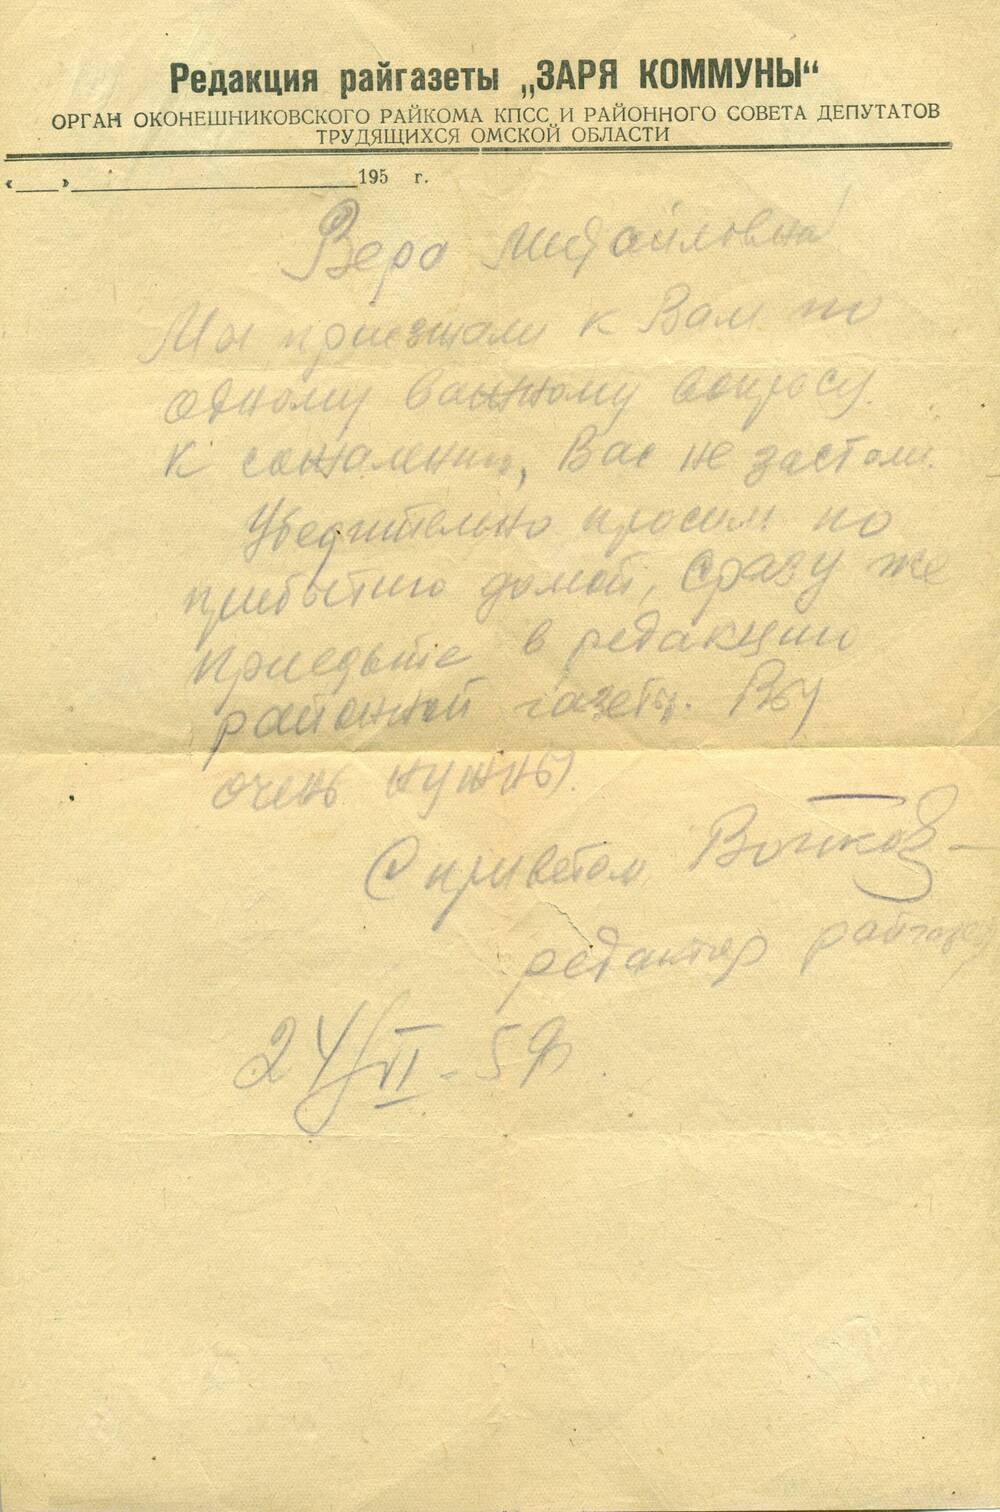 Редакция райгазеты „ЗАРЯ КОММУНЫ“
ОРГАН ОКОНЕШНИКОВСКОГО РАЙКОМА КПСС И РАЙОННОГО СОВЕТА ДЕПУТАТОВ
ТРУДЯЩИХСЯ ОМСКОЙ ОБЛАСТИ
«___»____________________195 г.
Вера Михайловна!
Мы приезжали к Вам по
одному важному вопросу.
К сожалению, Вас не застали.
Убедительно просим по
прибытию домой, сразу же
приедьте в редакцию
районной газеты. Вы
очень нужны.
С приветом
редактор райгазеты
24/VI-59